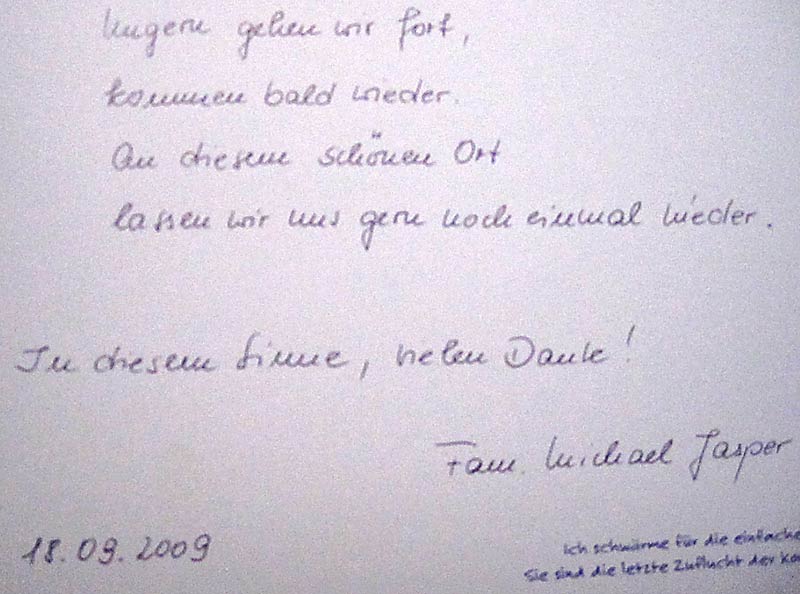 Ungern gehen wir fort,
kommen bald wieder.
An diesem schönen Ort
lassen wir uns gern noch einmal nieder.
In diesem Sinne, vielen Dank!
Fam. Michael Jasper
18.09.2009
Ich schwärme für die einfache
Sie sind die letzte Zuflucht der Ko